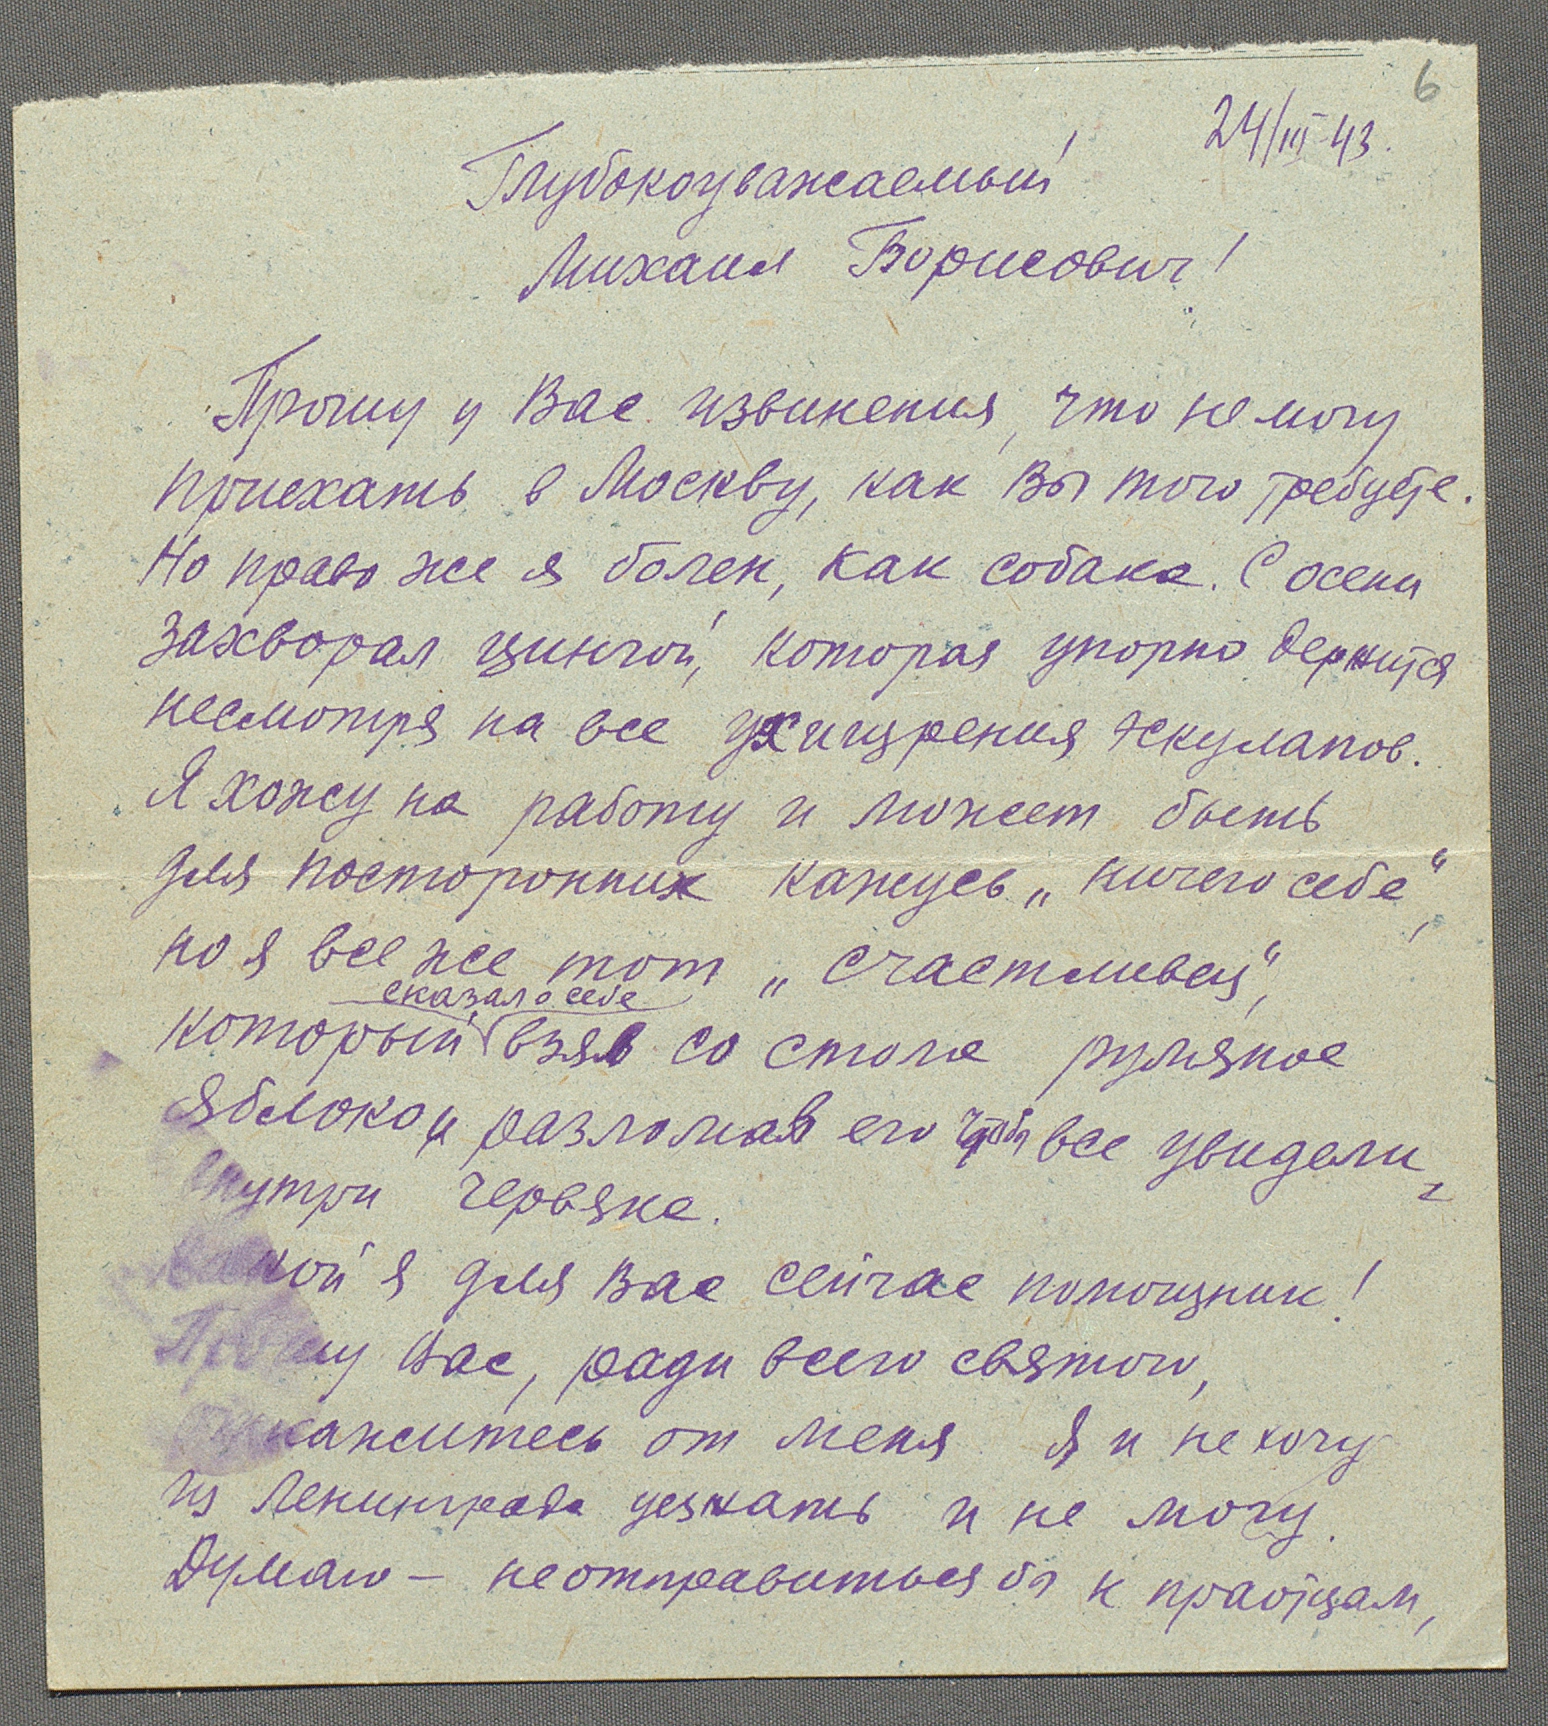 6
24/III-43.
Глубокоуважаемый
Михаил Борисович!
Прошу у Вас извинения, что не могу
приехать в Москву, как Вы того требуете.
Но право же я болен, как собака. С осени
захворал цингой, которая упорно держится
несмотря на все ухищрения эскулапов.
Я хожу на работу и может быть
для посторонних кажусь „ничего себе",
но я все же тот „счастливец",
сказал о себе
который взяв со стола румяное
яблоко и разломав его чтоб все увидели
внутри червяка.
кой я для Вас сейчас помощник!
Прошу Вас, ради всего святого,
откажитесь от меня Я и не хочу
из Ленинграда уезжать и не могу.
Думаю — не отправиться бы к праотцам,